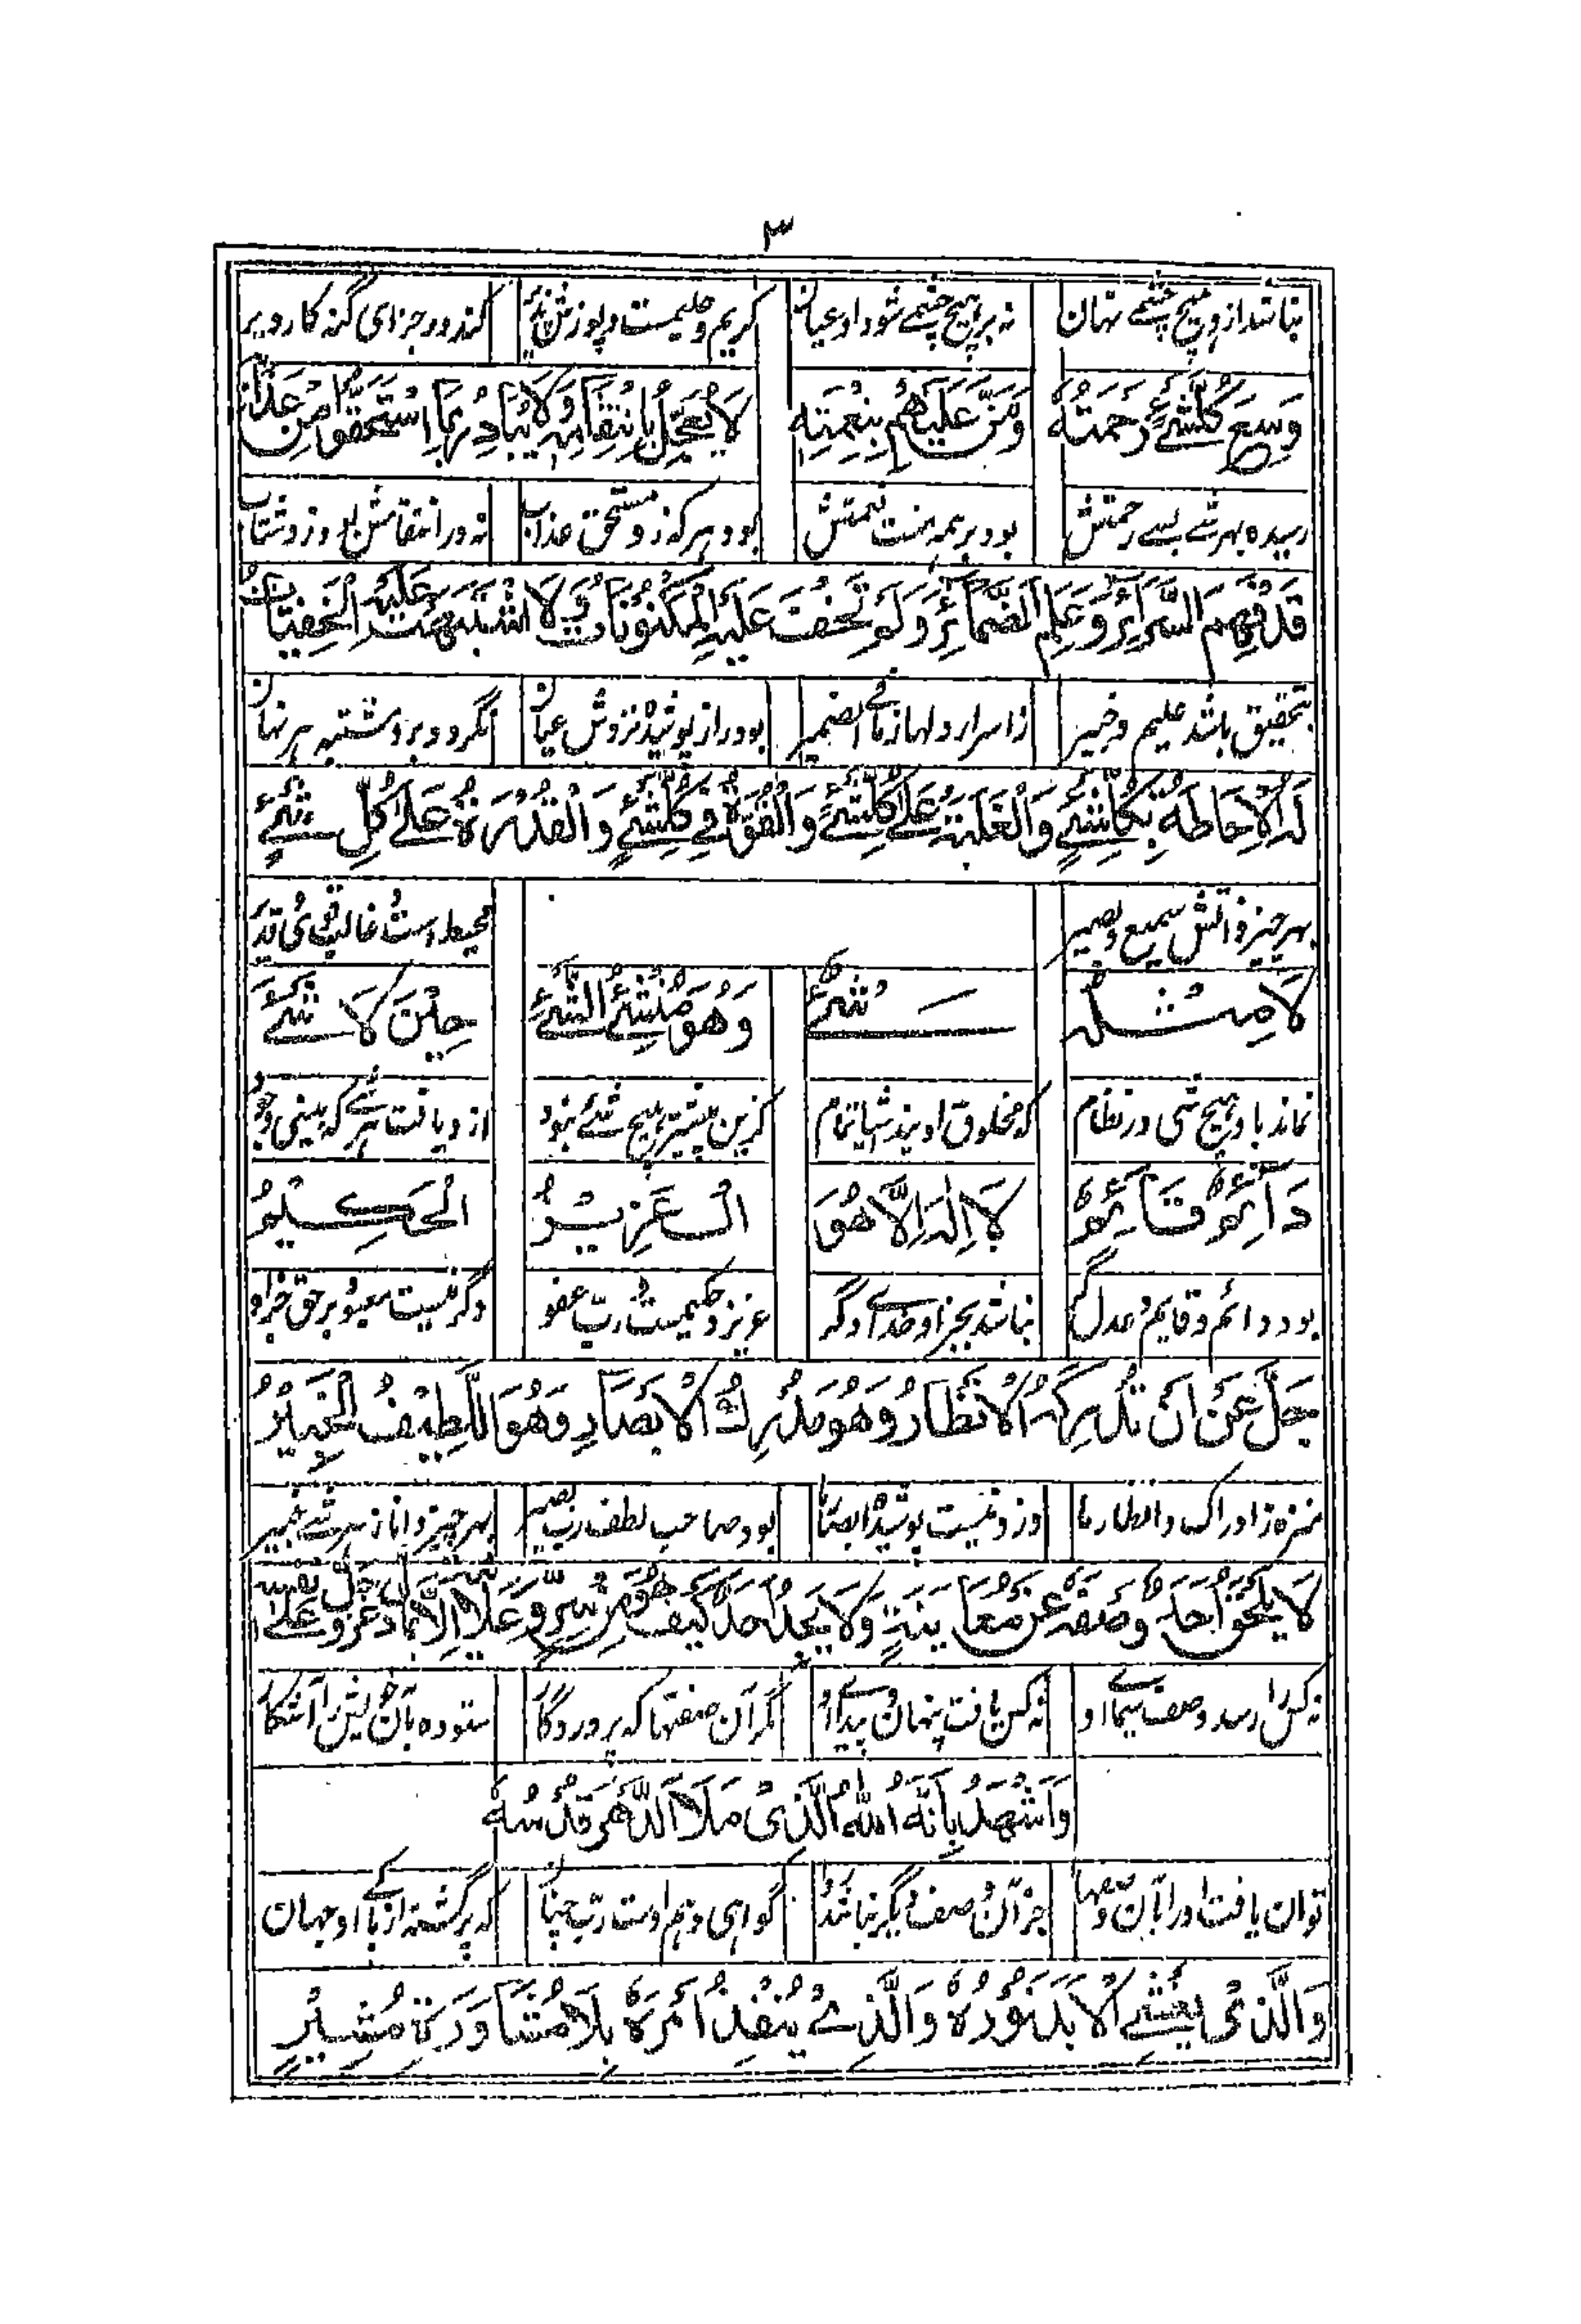 ٣
نباشد ازو هیچ چشمے نهان نه بر هیچ چشمے شود او عیان کریم و حلیمست و پوزش کند در جزای گنه کار دیر
وَسِعَ کُلَّ شَیْءٍ رَحْمَتُهُ وَمَنَّ عَلَیْهِمْ بِنِعْمَتِهِ لَا یُعَجِّلُ بِاِنْتِقَامِهِ وَلَا یُبَادِرُ بِمَا اسْتَحَقُّوْا مِنْ عَذَابِهِ
رسیده بهر شے بسے رحمتش بود بر همه منت نعمتش بود هر که زو مستحق عذاب نه در انتقامش بود زو شتاب
قَدْ فَهِمَ السَّرَائِرَ وَعَلِمَ الضَّمَائِرَ وَلَمْ تَخْفَ عَلَیْهِ الْمَکْنُوْنَاتُ وَلَا اشْتَبَهَتْ عَلَیْهِ الْخَفِیَّاتُ
بتحقیق باشد علیم و خبیر ز اسرار دلها ز ما فے الضمیر بود راز پوشیده نزدش عیان نگردد برو مشتبه هر نهان
لَهُ الْاِحَاطَةُ بِکُلِّ شَیْءٍ وَالْغَلَبَةُ عَلٰے کُلِّ شَیْءٍ وَالْقُوَّةُ فِے کُلِّ شَیْءٍ وَالْقُدْرَةُ عَلٰے کُلِّ شَیْءٍ
بهر چیز ذاتش سمیع و بصیر محیط است غالب قوی قدیر
لَا مِثْلَهُ شَیْءٌ وَهُوَ مُنْشِئُ الشَّیْءِ حِیْنَ لَا شَیْءَ
نماند باو هیچ شی در نظام که مخلوق اویند اشیا تمام کزین پیشتر هیچ شئے نبود ازو یافت هر شے که بینی وجود
دَائِمٌ قَائِمٌ لَا اِلٰهَ اِلَّا هُوَ الْعَزِیْزُ الْحَکِیْمُ
بود دائم و قایم عدل گر نباشد بجز او خداے دگر عزیز و حکیمست رب عفو دگر نیست معبود بر حق جز او
جَلَّ عَنْ اَنْ تُدْرِکَهُ الْاَنْظَارُ وَهُوَ یُدْرِكُ الْاَبْصَارَ وَهُوَ اللَّطِیْفُ الْخَبِیْرُ
منزه ز ادراک و انظار ما وزو نیست پوشیده ابصار ما بود صاحب لطف رب بصیر بهر چیز دانا ز هر شے خبیر
لَا یَلْحَقُ اَحَدٌ وَصْفَهُ عَنْ مُعَایَنَةٍ وَلَا یَجِدُ اَحَدٌ کَیْفَ هُوَ مِنْ سِرٍّ وَّعَلَانِیَةٍ اِلَّا بِمَا دَلَّ عَزَّ وَجَلَّ عَلٰے نَفْسِهِ
نه کس را رسد وصف سیماے او نه کس یافت پنهان و پیداے او مگر آن صفتها که پروردگار ستوده بآن خویش را آشکار
وَاَشْهَدُ بِاَنَّهُ اللهُ الَّذِیْ مَلَاَ الدَّهْرَ قُدْسُهُ
توان یافت او را بآن وصفها جز آن وصف دیگر نباشد گواهی دهم اوست رب که پر گشته از پاکے او جهان
وَالَّذِیْ یَغْشَے الْاَبَدَ نُوْرُهُ وَالَّذِیْ یُنْفِذُ اَمْرَهُ بِلَا مُشَاوَرَةِ مُشِیْرٍ